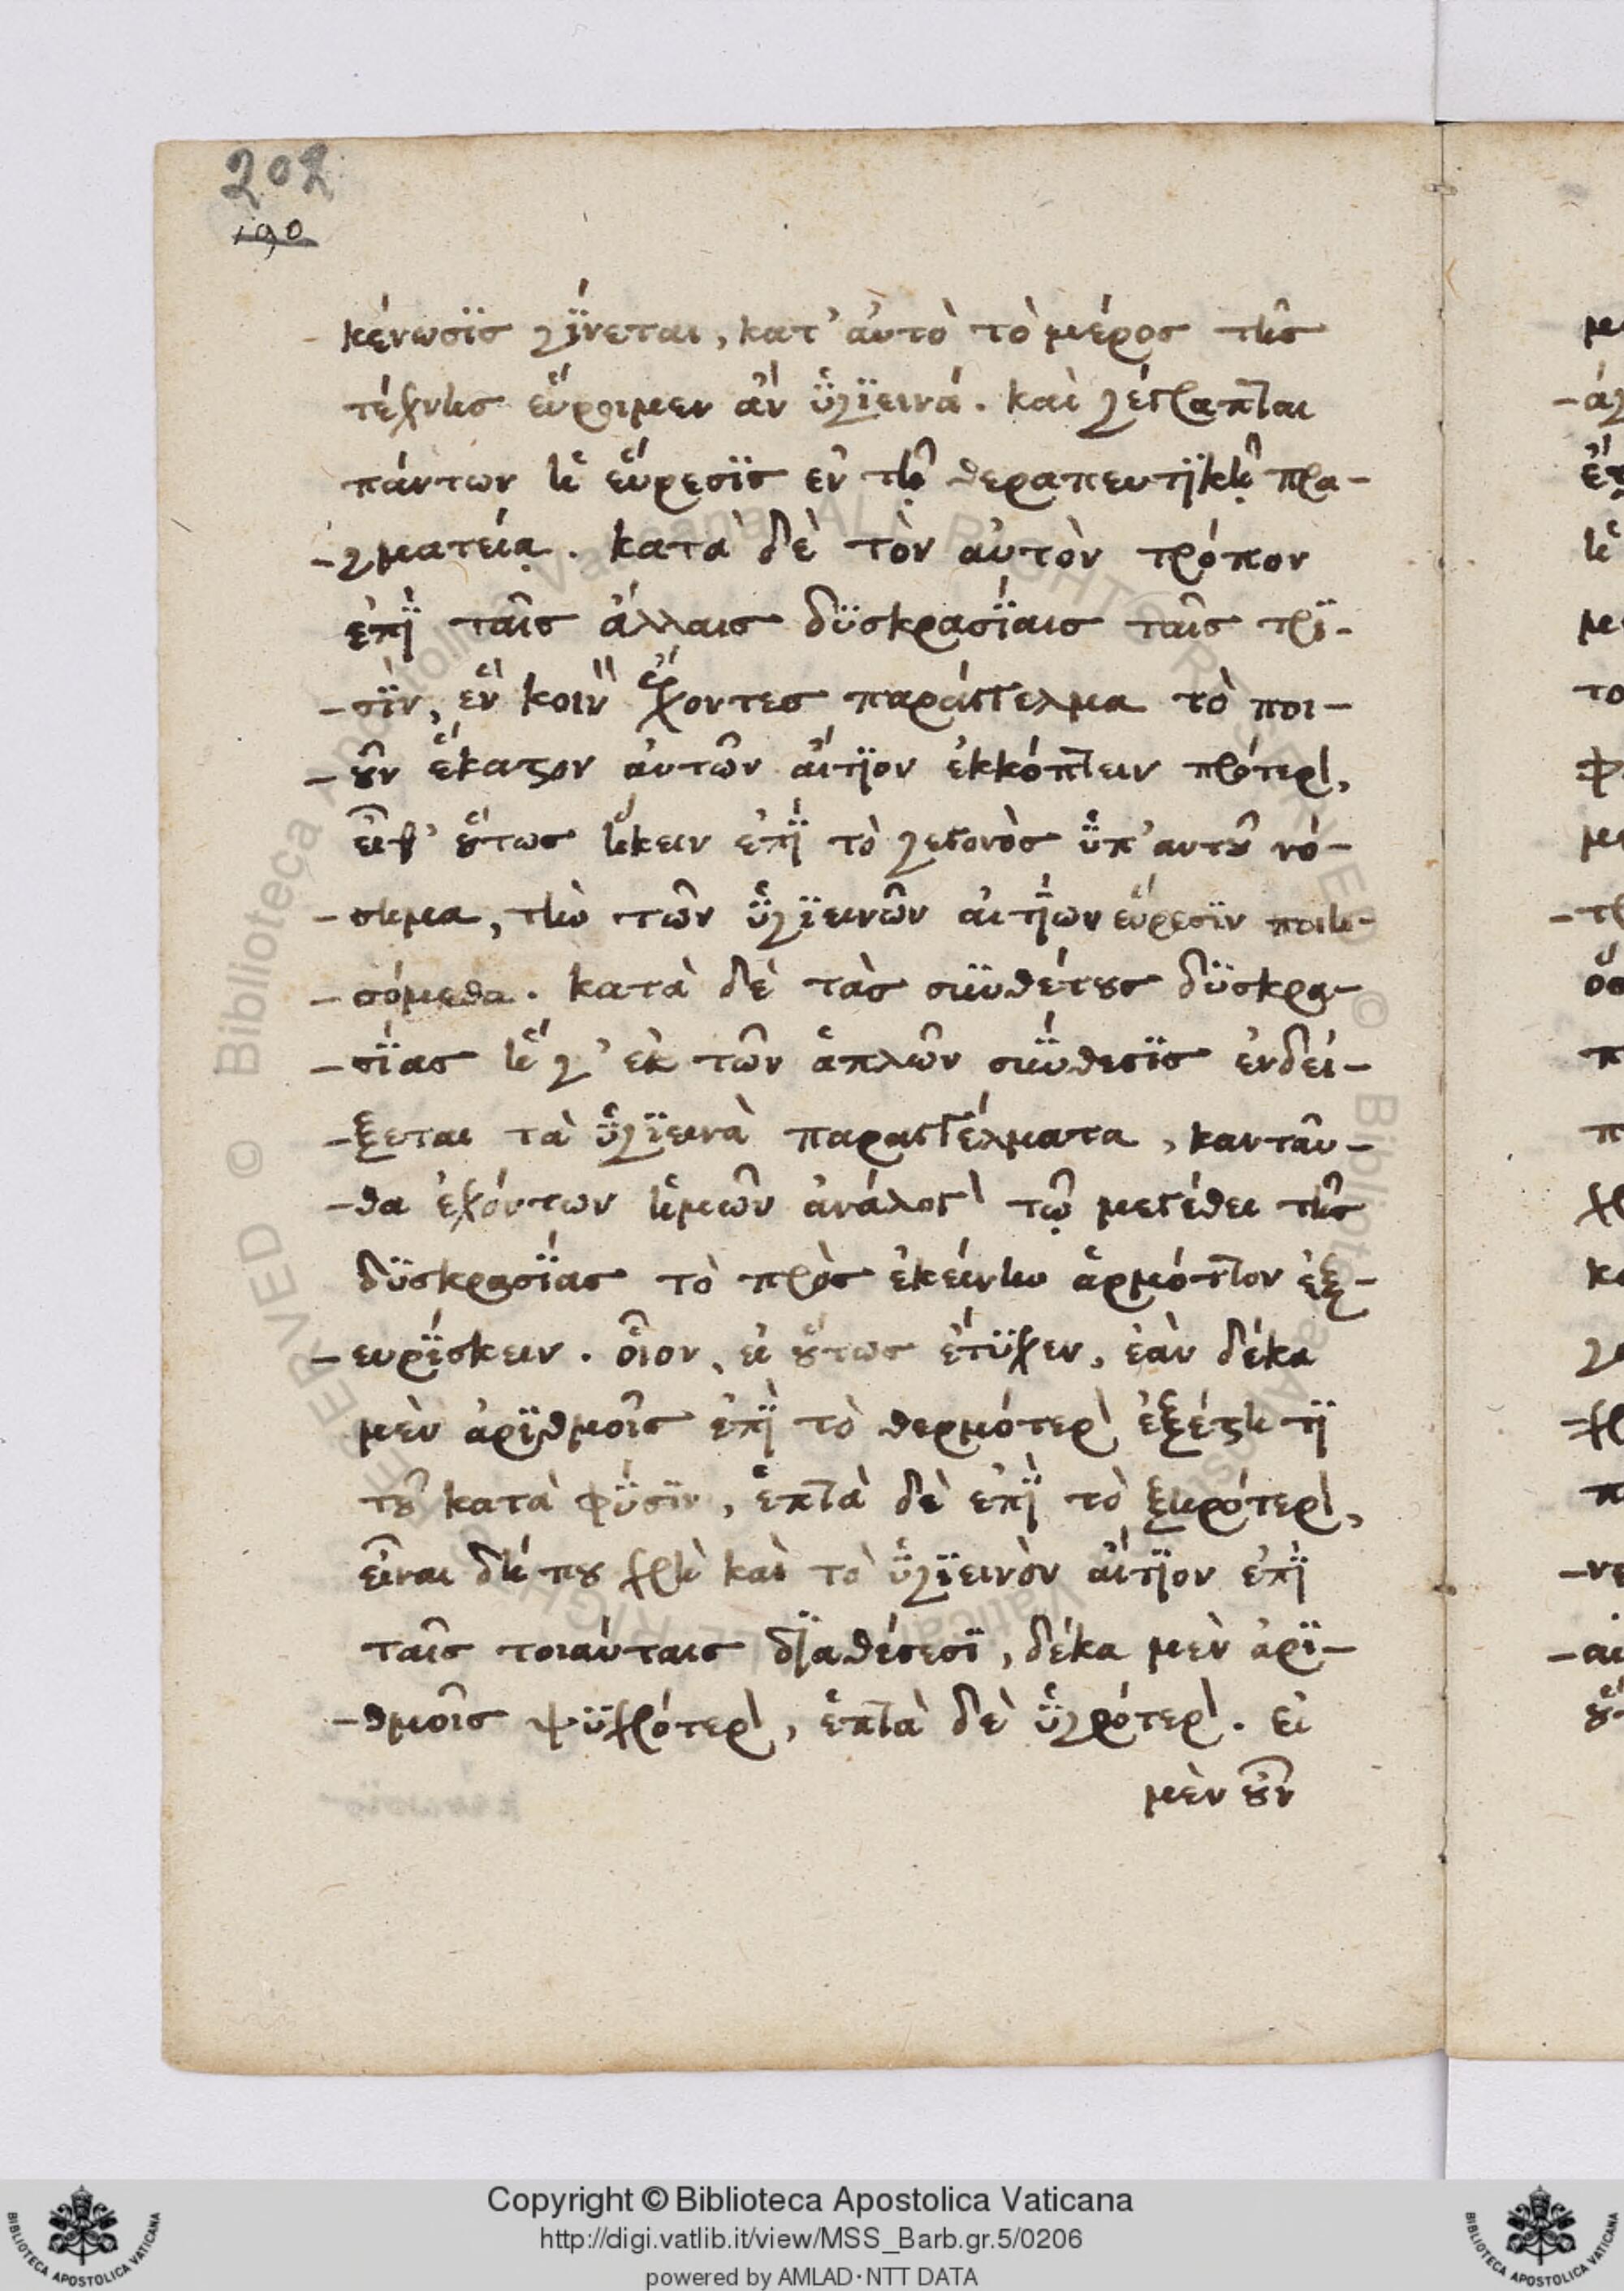 202
190
κένωσϊς γΐνεται, κατ' ἀυτὸ τὸ μέρος τῆς
τέχνης εὕροιμεν ἂν ὑγϊεινά. καὶ γέγραπται
πάντων ἡ εὕρεσϊς ἐν τῇ θεραπευτϊκῇ πρα-
-γματείᾳ. κατὰ δὲ τὸν ἀυτὸν τρόπον
ἐπῒ ταῖς ἄλλαις δϋσκρασΐαις ταῖς τρϊ-
-σῒν, ἓν κοινὸν ἔχοντες παράγγελμα τὸ ποι-
-οῦν ἕκαστον ἀυτῶν ἄιτϊον ἐκκόπτειν πρότερον,
εἶθ' οὕτως ἥκειν ἐπῒ τὸ γεγονὸς ὑπ' αυτοῦ νό-
-σημα, τὴν τῶν ὑγϊεινῶν ἀιτΐων εὕρεσϊν ποιη-
-σόμεθα. κατὰ δὲ τὰς συνθέτους δϋσκρα-
-σΐας ἥ γ' ἐκ τῶν ἁπλῶν σύνθεσϊς ἐνδεί-
-ξεται τὰ ὑγϊεινὰ παραγγέλματα, κανταῦ-
-θα ἐχόντων ἡμῶν ἀνάλογον τῷ μεγέθει τῆς
δϋσκρασΐας τὸ πρὸς ἐκείνην ἁρμόττον ἐξ-
-ευρΐσκειν. οἷον, εἰ οὕτως ἔτϋχεν, ἐὰν δέκα
μὲν ἀρϊθμοῖς ἐπῒ τὸ θερμότερον ἐξέστη τϊ
τοῦ κατὰ φΰσϊν, ἑπτὰ δὲ ἐπῒ τὸ ξηρότερον,
εἶναι δή που χρὴ καὶ τὸ ὑγϊεινὸν ἄιτϊον ἐπῒ
ταῖς τοιαύταις δϊαθέσεσϊ, δέκα μὲν ἀρϊ-
-θμοῖς ψϋχρότερον, ἑπτὰ δὲ ὑγρότερον. εἰ
μὲν οὖν
Copyright © Biblioteca Apostolica Vaticana
http://digi.vatlib.it/view/MSS_Barb.gr.5/0206
powered by AMLAD·NTT DATA